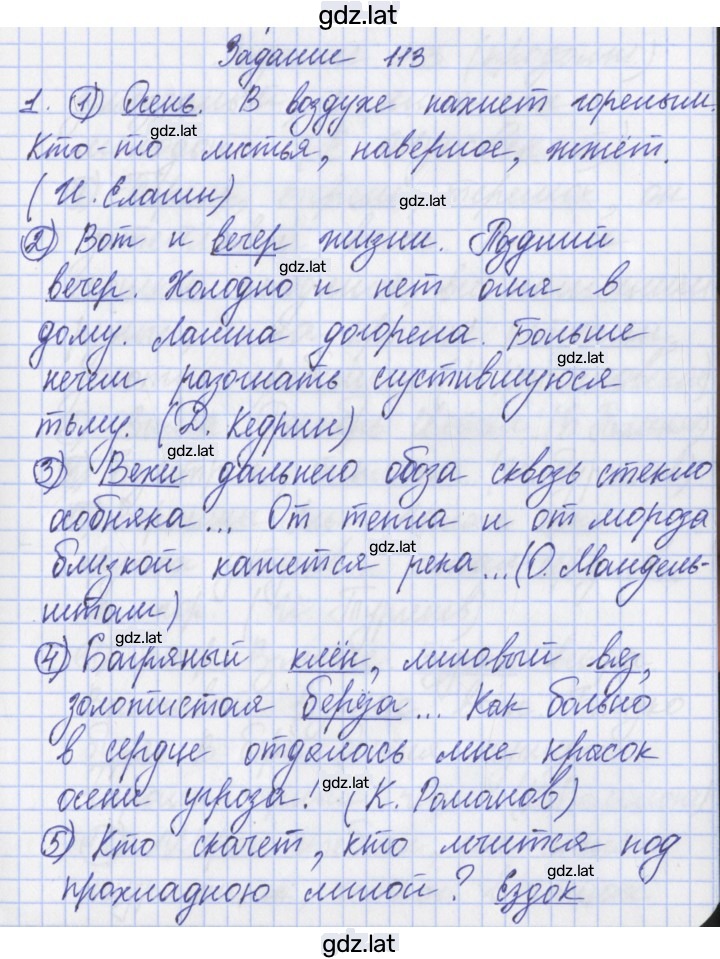 gdz.lat
Задание 113
1. 1) Осень. В воздухе пахнет горелым.
gdz.lat
Кто-то листья, наверное, жжёт.
(И. Елагин)
gdz.lat
2) Вот и вечер жизни. Поздний
gdz.lat
вечер. Холодно и нет огня в
дому. Лампа догорела. Больше
gdz.lat
нечем разогнать сгустившуюся
тьму. (Д. Кедрин)
gdz.lat
3) Вехи дальнего обоза сквозь стекло
особняка... От тепла и от мороза
gdz.lat
близкой кажется река... (О. Мандель-
штам)
gdz.lat
4) Багряный клён, лиловый вяз,
gdz.lat
золотистая берёза... Как больно
в сердце отдалась мне красок
gdz.lat
осени угроза! (К. Романов)
5) Кто скачет, кто мчится под
gdz.lat
прохладною мглой? Ездок
gdz.lat